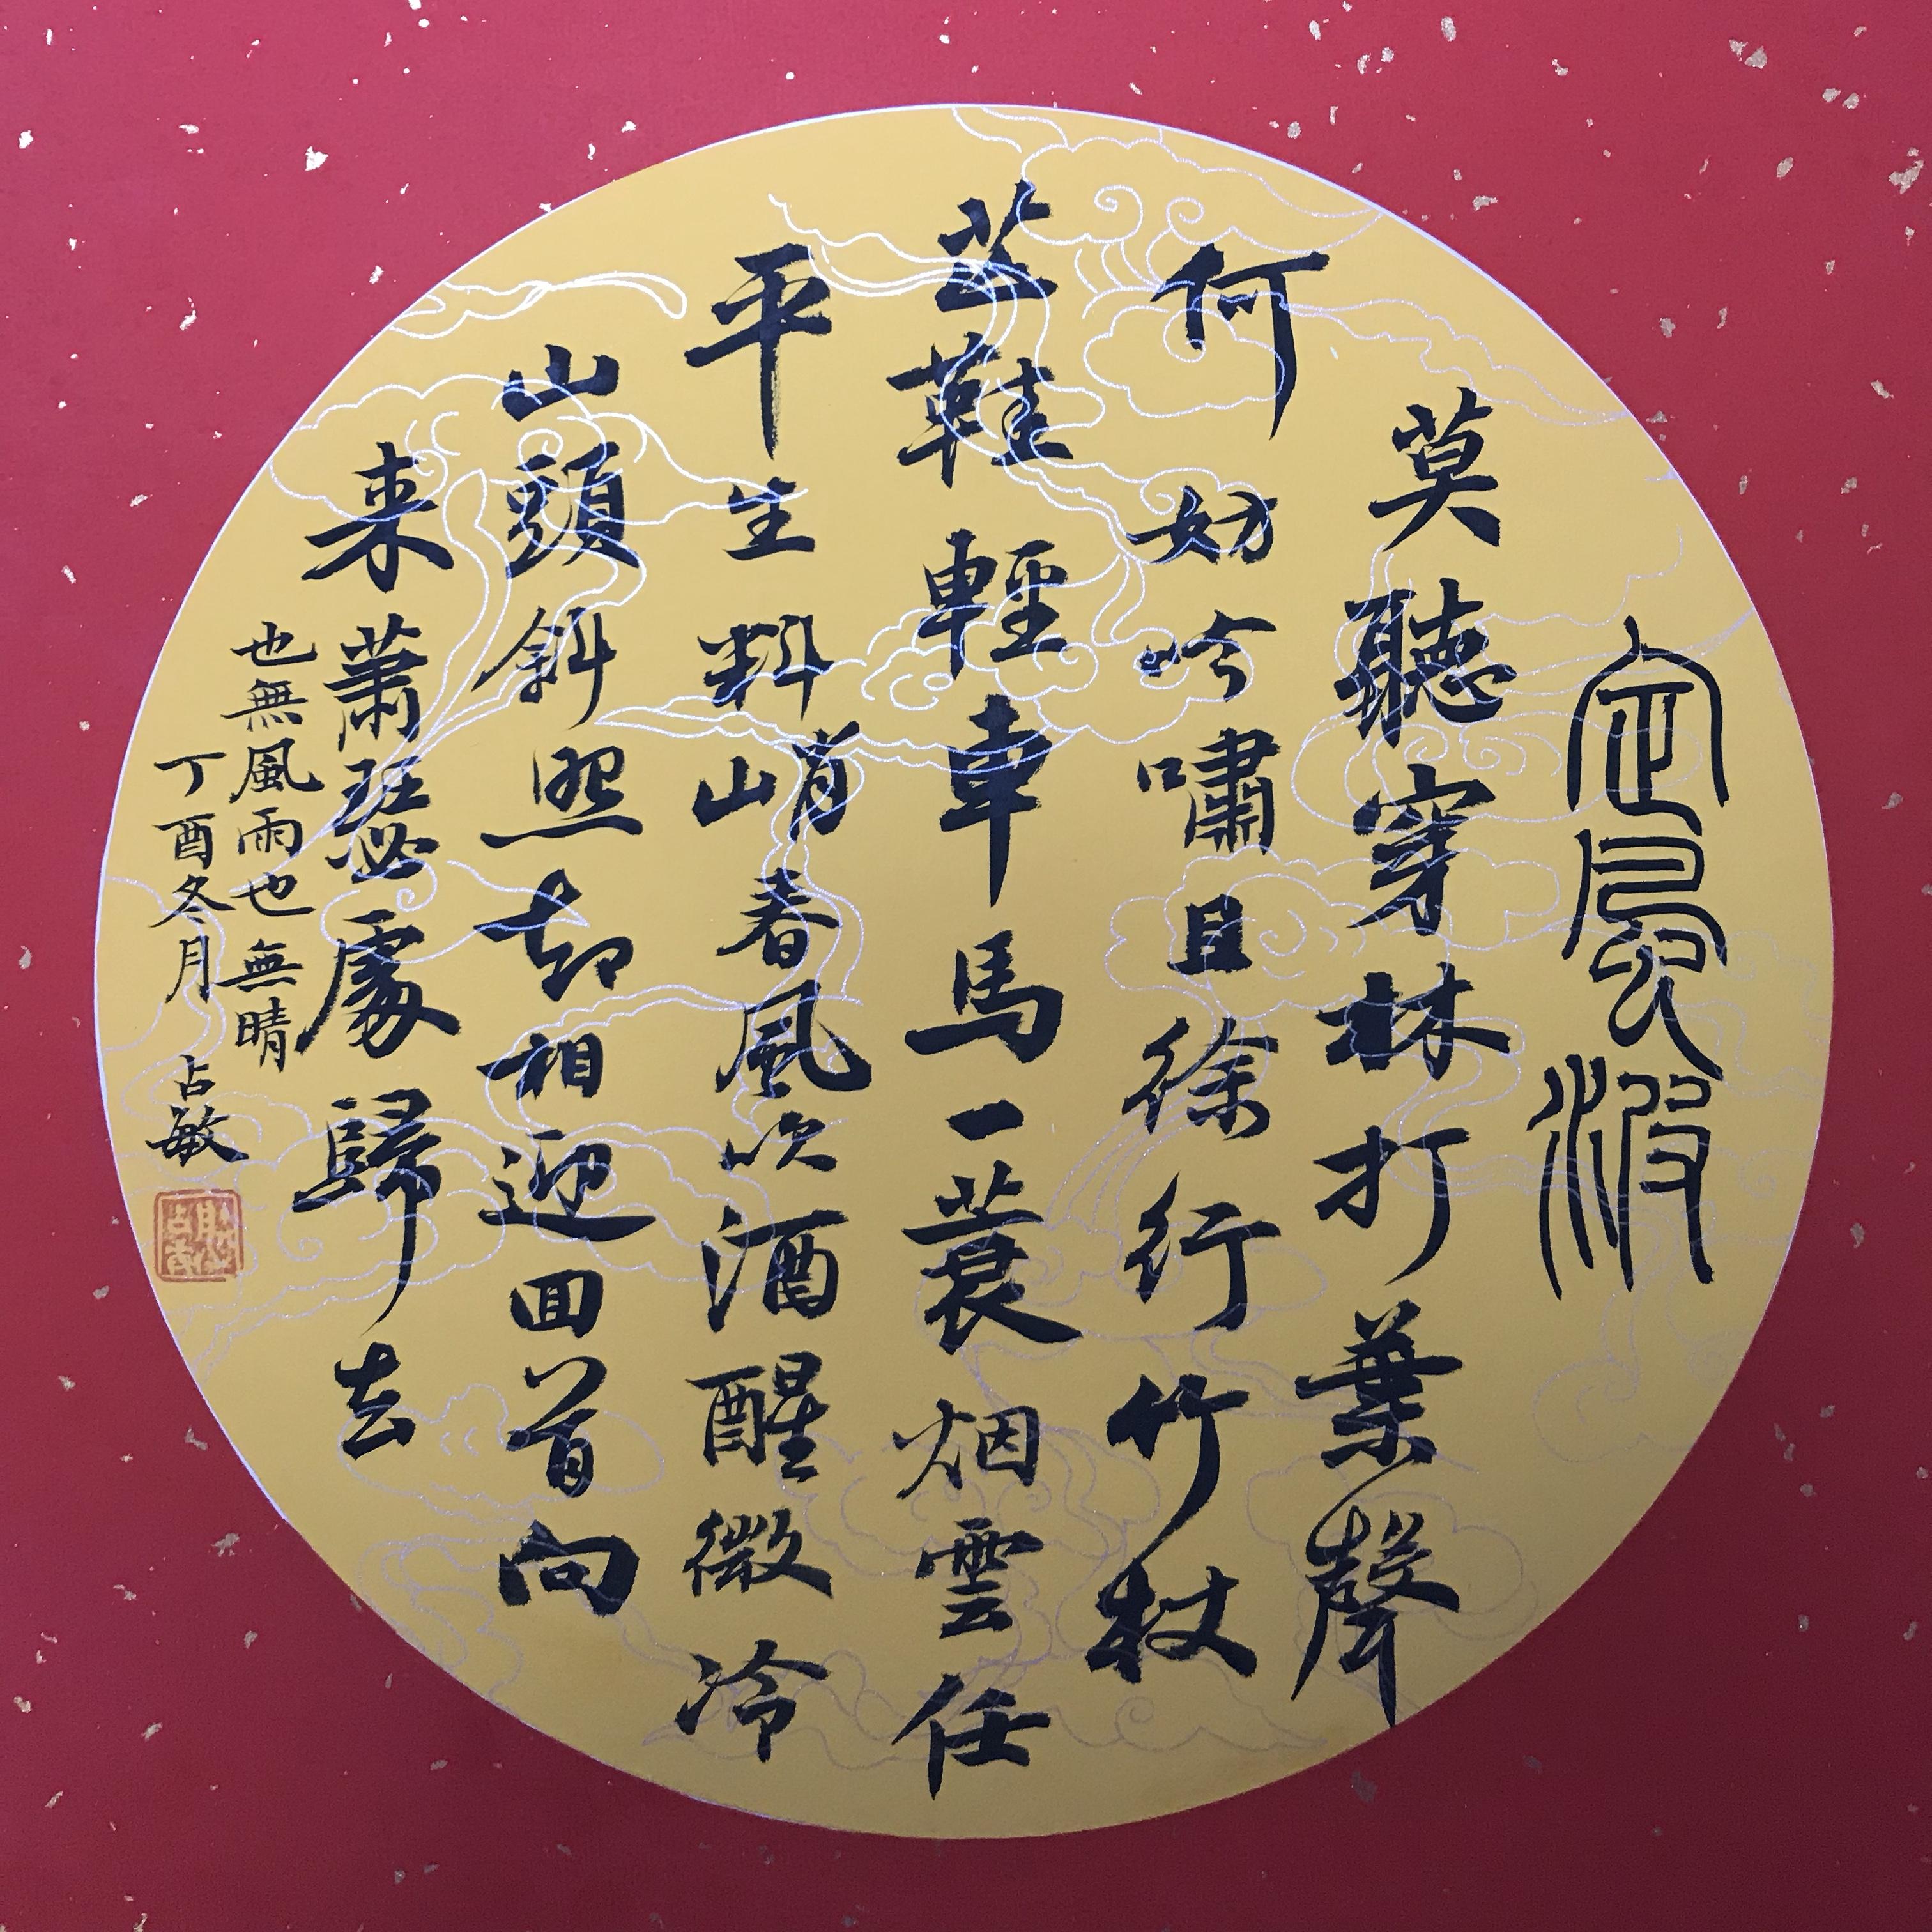 定風波
莫聽穿林打葉聲
何妨吟嘯且徐行竹杖
芒鞋輕車馬一蓑烟雲任
平生料峭春風吹酒醒微冷
山頭斜照却相迎回首向
来蕭瑟處歸去
也無風雨也無晴
丁酉冬月 占敏